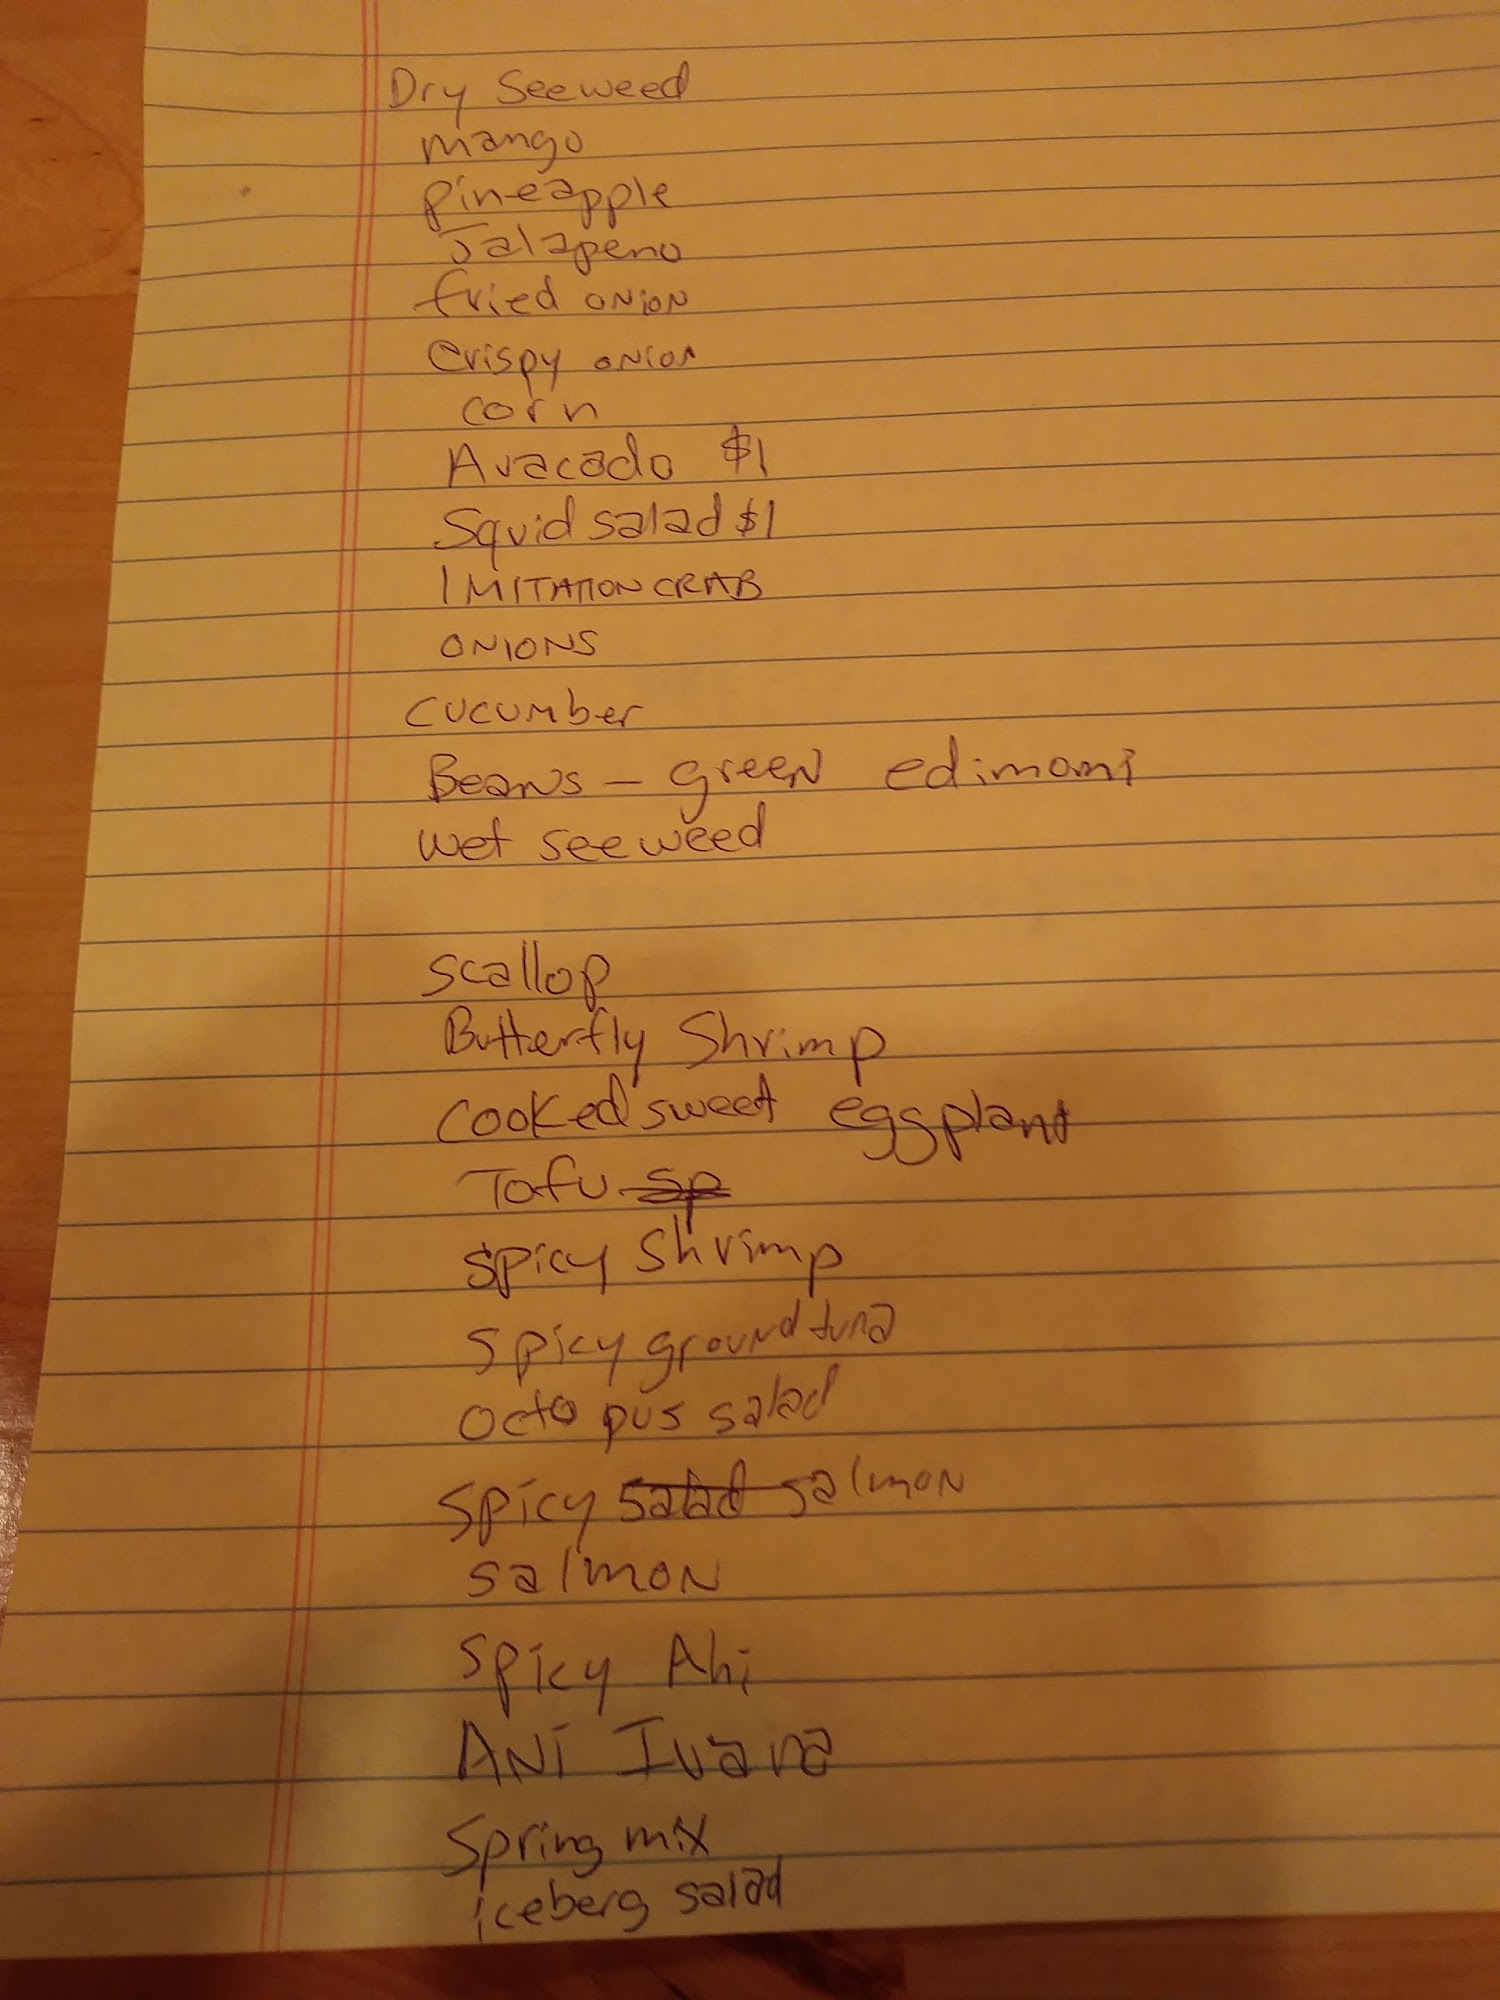 Dry Seeweed
mango
pineapple
Jalapeno
fried onion
Crispy onion
corn
Avacado $1
Squid salad $1
IMITATION CRAB
ONIONS
cucumber
Beans - green edimomi
wet seeweed
scallop
Butterfly Shrimp
cooked sweet eggplant
Tofu sp
spicy shrimp
spicy ground tuna
octopus salad
spicy salad salmon
salmon
spicy Ahi
Spring mix
iceberg salad